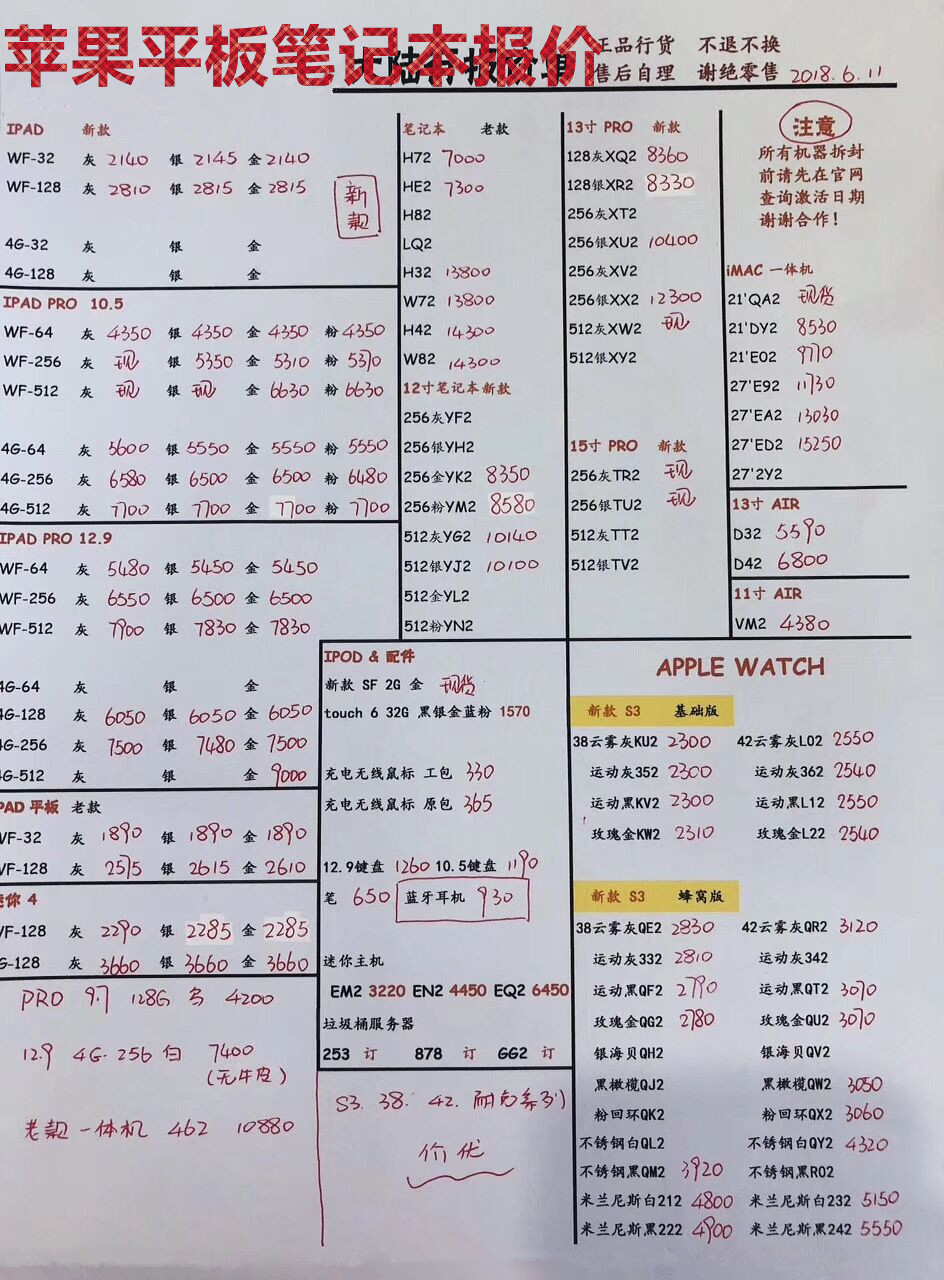 苹果平板笔记本报价
大陆行报价单
正品行货 不退不换
售后自理 谢绝零售 2018.6.11
IPAD 新款
WF-32 灰 2140 银 2145 金 2140
WF-128 灰 2810 银 2815 金 2815
新款
4G-32 灰 银 金
4G-128 灰 银 金
IPAD PRO 10.5
WF-64 灰 4350 银 4350 金 4350 粉 4350
WF-256 灰 现 银 5350 金 5310 粉 5370
WF-512 灰 现 银 现 金 6630 粉 6630
4G-64 灰 5600 银 5550 金 5550 粉 5550
4G-256 灰 6580 银 6500 金 6500 粉 6480
4G-512 灰 7700 银 7700 金 7700 粉 7700
IPAD PRO 12.9
WF-64 灰 5480 银 5450 金 5450
WF-256 灰 6550 银 6500 金 6500
WF-512 灰 7900 银 7830 金 7830
4G-64 灰 银 金
4G-128 灰 6050 银 6050 金 6050
4G-256 灰 7500 银 7480 金 7500
4G-512 灰 银 金 9000
PAD 平板 老款
WF-32 灰 1890 银 1890 金 1890
WF-128 灰 2575 银 2615 金 2610
迷你 4
WF-128 灰 2290 银 2285 金 2285
4G-128 灰 3660 银 3660 金 3660
PRO 9.7 128G 4200
12.9 4G-256 白 7400
(无牛皮)
老款一体机 462 10880
笔记本 老款
H72 7000
HE2 7300
H82
LQ2
H32 13800
W72 13800
H42 14300
W82 14300
12寸笔记本新款
256灰YF2
256银YH2
256金YK2 8350
256粉YM2 8580
512灰YG2 10140
512银YJ2 10100
512金YL2
512粉YN2
13寸 PRO 新款
128灰XQ2 8360
128银XR2 8330
256灰XT2
256银XU2 10400
256灰XV2
256银XX2 12300
512灰XW2 现
512银XY2
15寸 PRO 新款
256灰TR2 现
256银TU2 现
512灰TT2
512银TV2
注意
所有机器拆封
前请先在官网
查询激活日期
谢谢合作！
iMAC 一体机
21'QA2 现货
21'DY2 8530
21'E02 9770
27'E92 11730
27'EA2 13030
27'ED2 15250
27'2Y2
13寸 AIR
D32 5590
D42 6800
11寸 AIR
VM2 4380
IPOD & 配件
新款 SF 2G 金 现货
touch 6 32G 黑银金蓝粉 1570
充电无线鼠标 工包 330
充电无线鼠标 原包 365
12.9键盘 1260 10.5键盘 1190
笔 650 蓝牙耳机 930
迷你主机
EM2 3220 EN2 4450 EQ2 6450
垃圾桶服务器
253 订 878 订 GG2 订
S3. 38. 42. 耐克系列
价优
APPLE WATCH
新款 S3 基础版
38云雾灰KU2 2300 42云雾灰LO2 2550
运动灰352 2300 运动灰362 2540
运动黑KV2 2300 运动黑L12 2550
玫瑰金KW2 2310 玫瑰金L22 2540
新款 S3 蜂窝版
38云雾灰QE2 2830 42云雾灰QR2 3120
运动灰332 2810 运动灰342
运动黑QF2 2790 运动黑QT2 3070
玫瑰金QG2 2780 玫瑰金QU2 3070
银海贝QH2 银海贝QV2
黑橄榄QJ2 黑橄榄QW2 3050
粉回环QK2 粉回环QX2 3060
不锈钢白QL2 不锈钢白QY2 4320
不锈钢,黑QM2 3920 不锈钢,黑R02
米兰尼斯白212 4800 米兰尼斯白232 5150
米兰尼斯,黑222 4900 米兰尼斯,黑242 5550